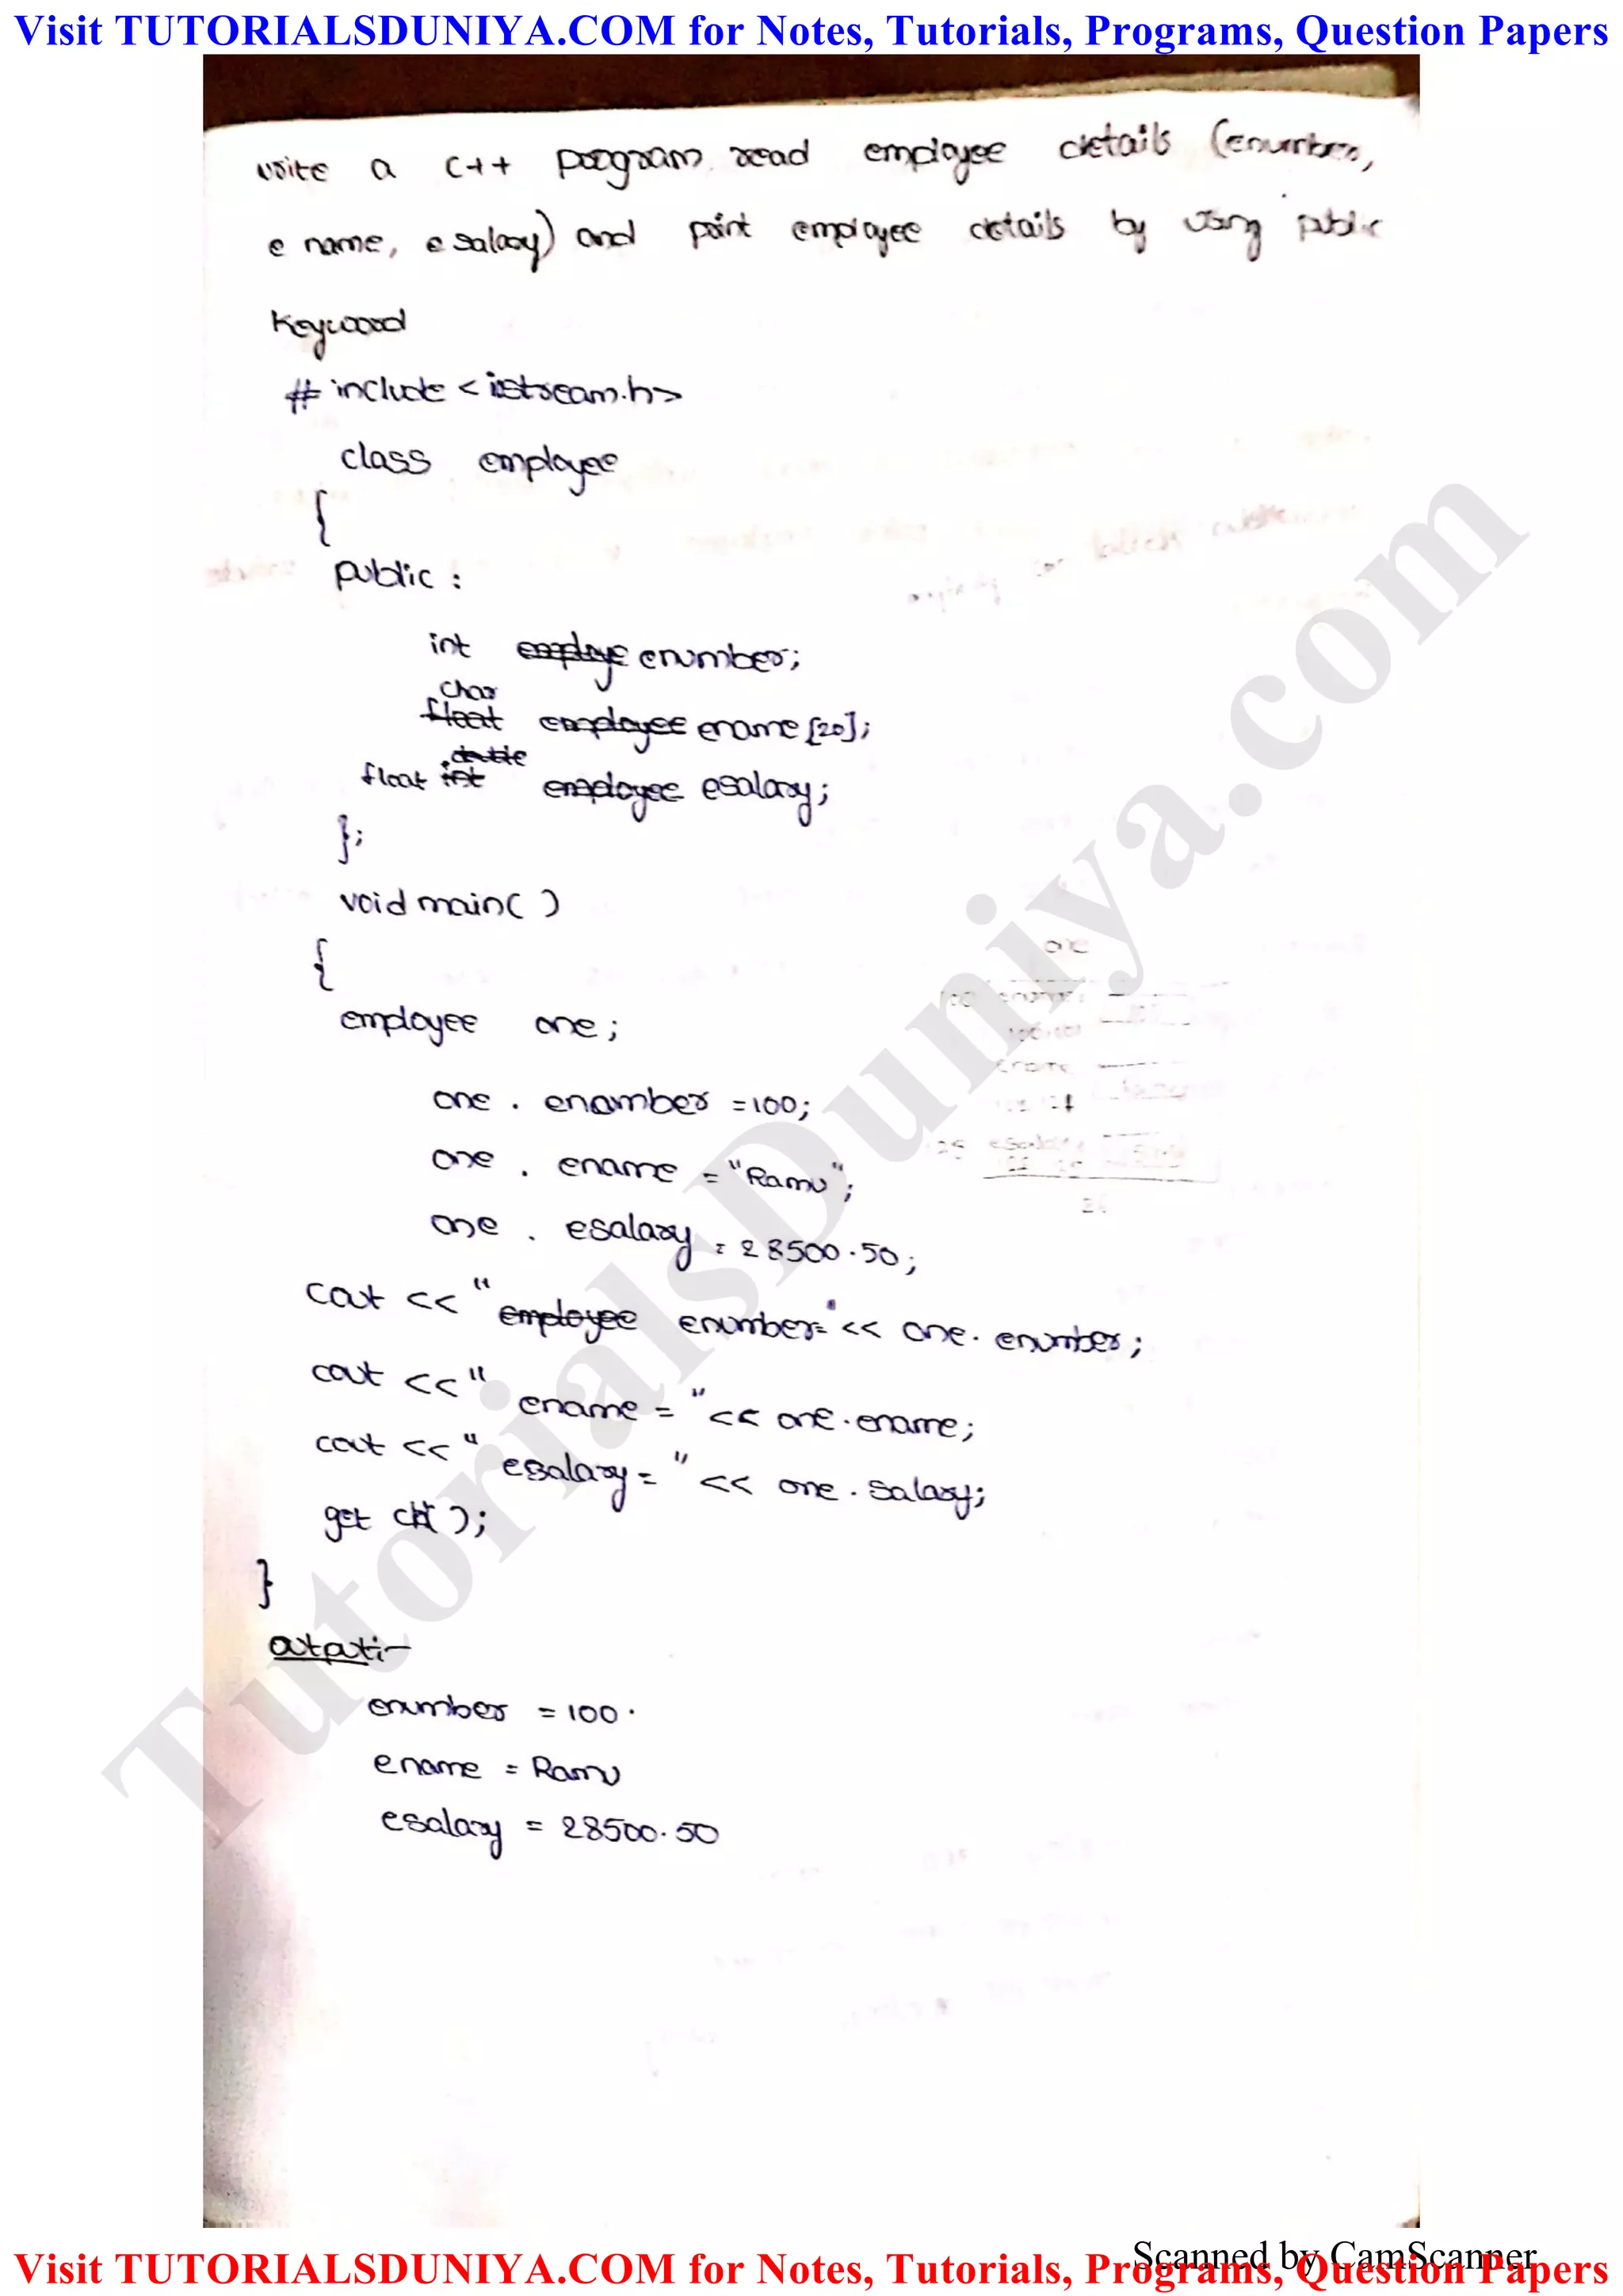 Visit TUTORIALSDUNIYA.COM for Notes, Tutorials, Programs, Question Papers
write a C++ program read employee details (enumber,
e name, e salary) and print employee details by using public
Keyword
# include <iostream.h>
class employee
{
public :
int employe enumber;
char
float employee ename [20];
double
float int employee esalary;
};
void main( )
{
employee one ;
one . enumber =100;
one . ename = "Ramu";
one . esalary = 28500.50;
cout << "employee enumber=" << one. enumber;
cout << " ename = " << one.ename;
cout << " esalary = " << one . salary;
get ch( );
}
output:-
enumber = 100.
ename = Ramu
esalary = 28500.50
TutorialsDuniya.com
Scanned by CamScanner
Visit TUTORIALSDUNIYA.COM for Notes, Tutorials, Programs, Question Papers